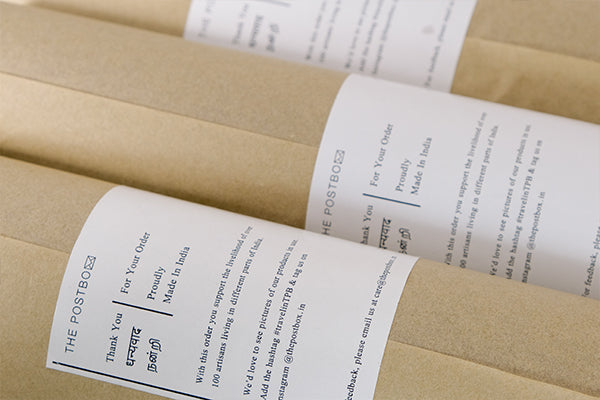 THE POSTBO
Thank You
धन्यवाद
நன்றி
For Your Order
Proudly
Made In India
With this order you support the livelihood of
100 artisans living in different parts of India.
We'd love to see pictures of our products in use.
Add the hashtag #travelinTPB & tag us on
Instagram @thepostbox.in
feedback, please email us at
THE POSTBO
Thank You
धन्यवाद
நன்றி
For Your Order
Proudly
Made In India
With this order you support the livelihood of
100 artisans living in different parts of India.
We'd love to see pictures of our products in use.
Add the hashtag #travelinTPB & tag us
Instagram @thepostbox.in
For feedback, please
THE POSTBO
Thank You